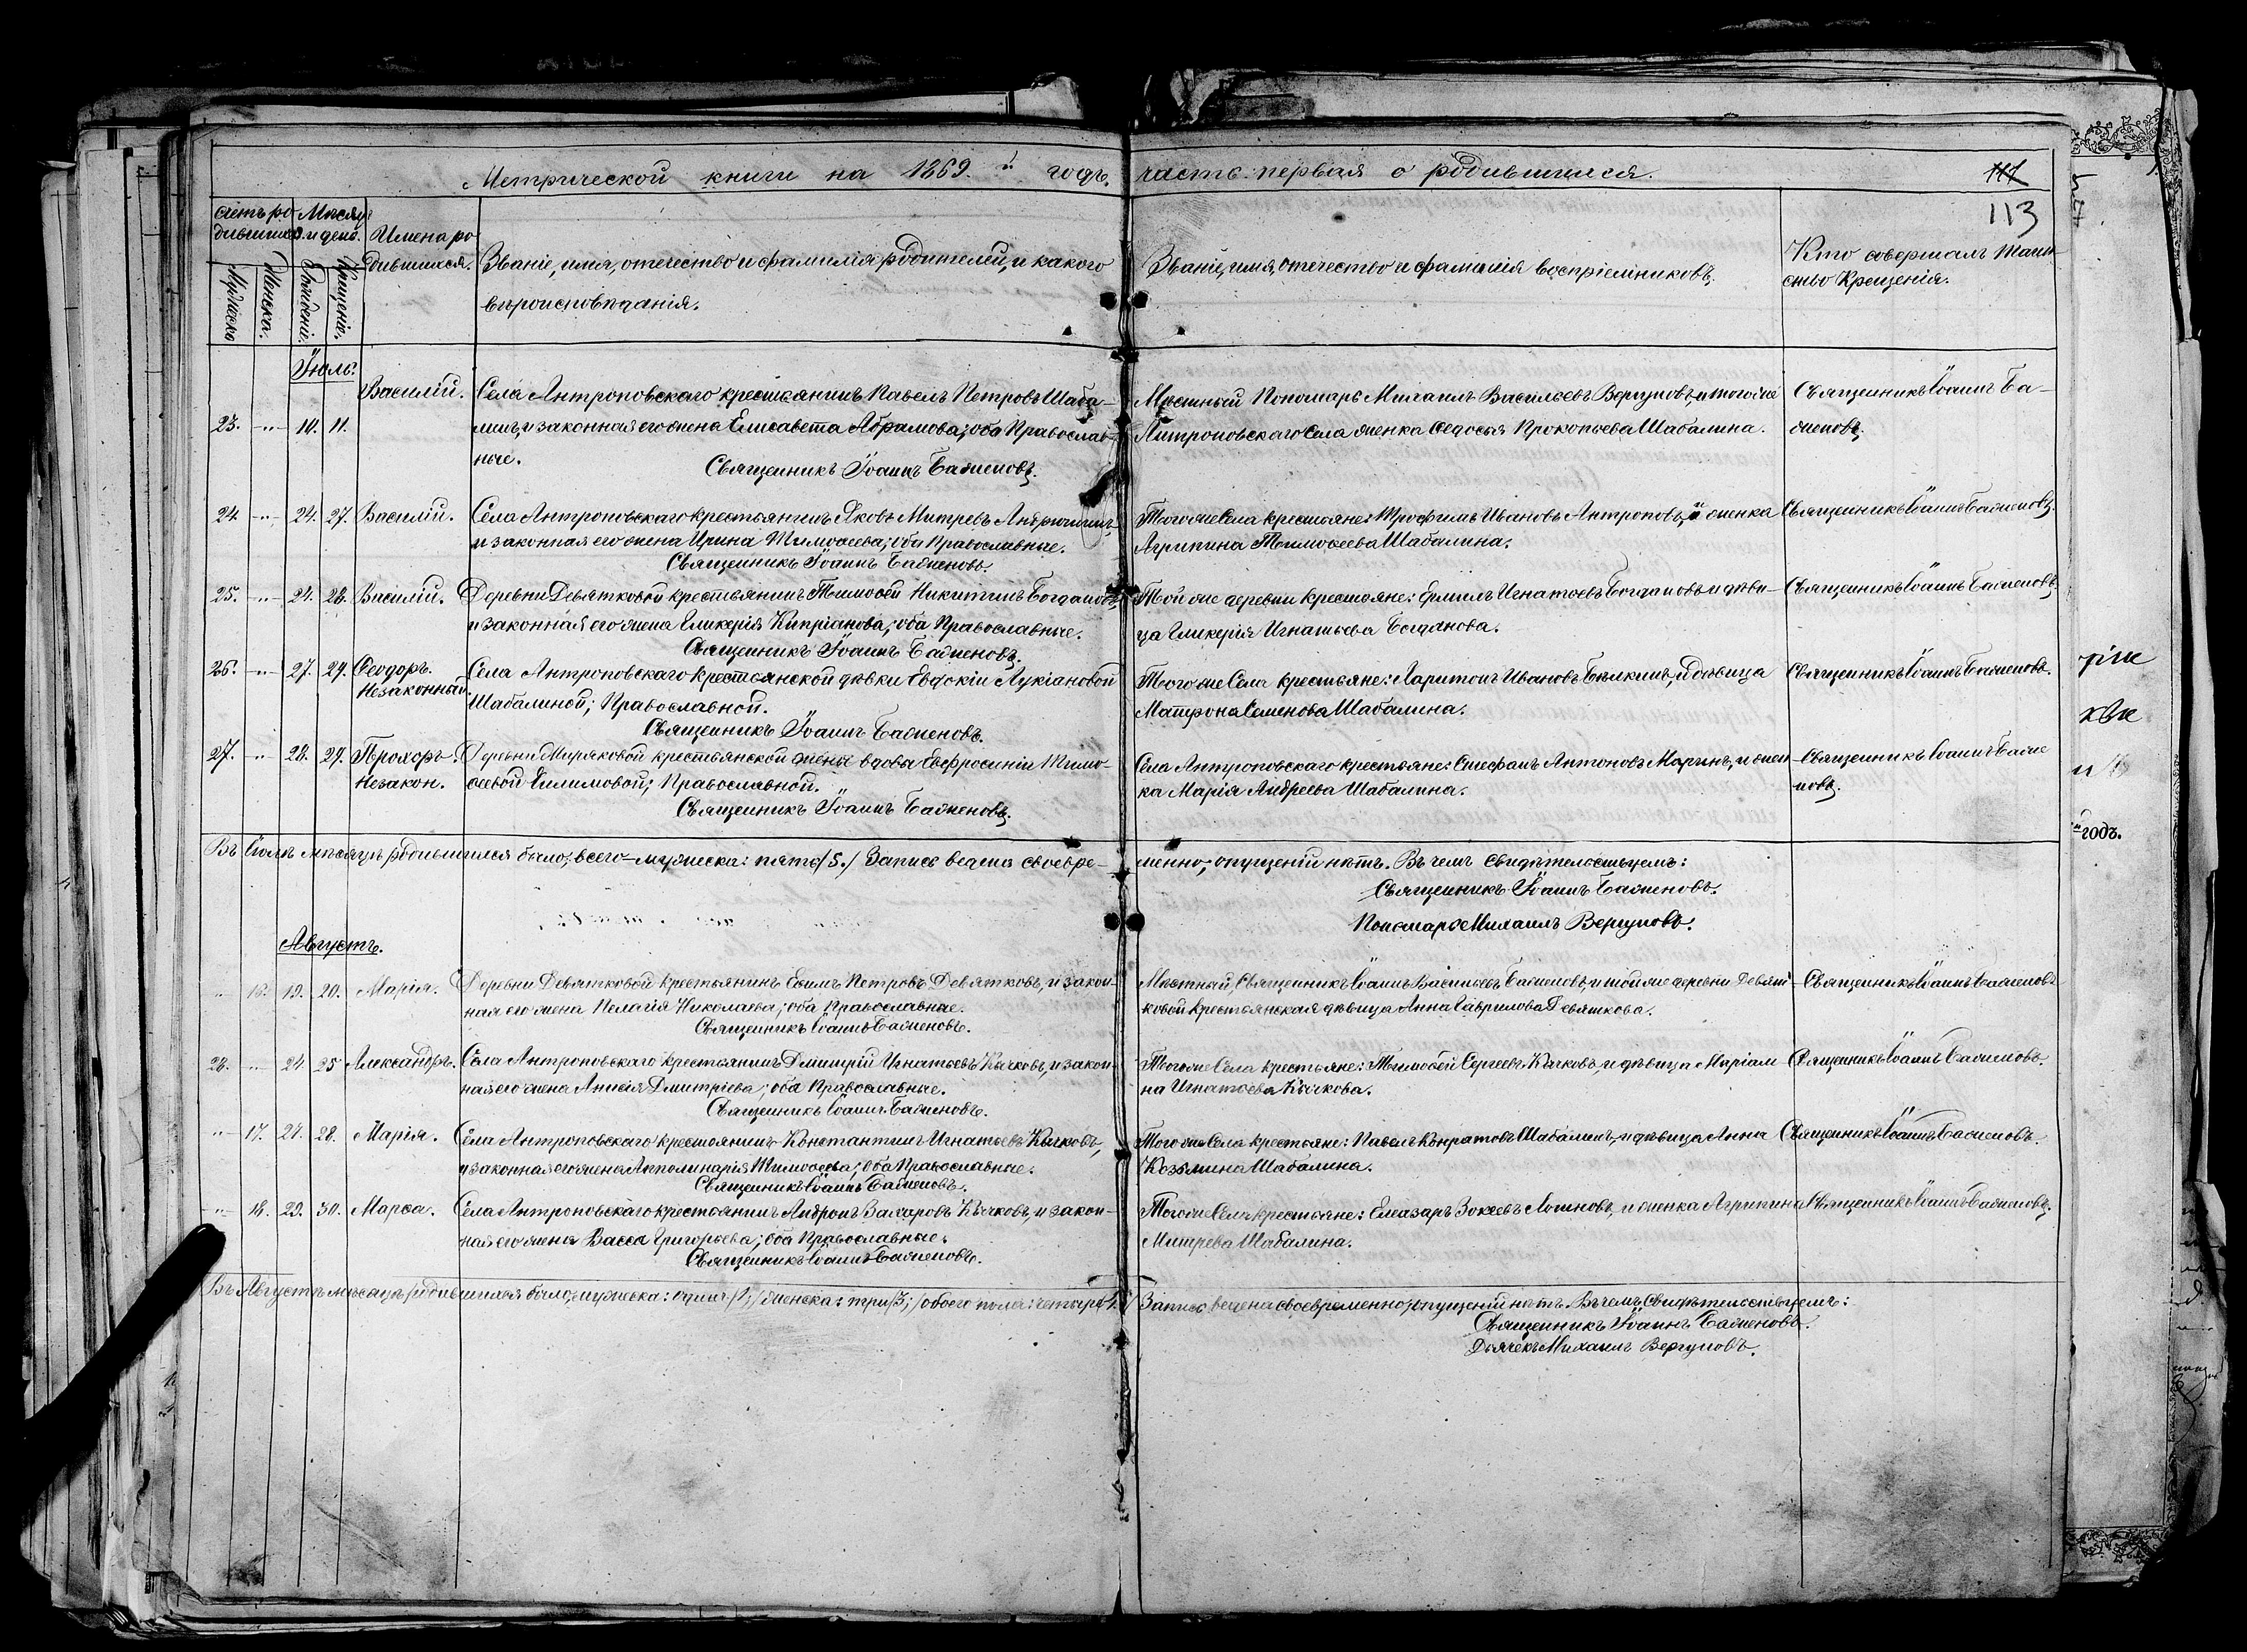 Метрической книги на 1869.й годъ, часть первая о родившихся.
111
113
Счетъ ро-
дившихся.
Мѣсяцъ
и день.
Имена ро-
дившихся.
Мужеска
Женска.
Рожденіе.
Крещеніе.
Званіе, имя, отечество и фамилія родителей, и какого
вѣроисповѣданія.
Званіе, имя, отечество и фамилія воспріемниковъ.
Кто совершалъ таин-
ство Крещенія.
Іюль.
23. -"- 10. 11. Василій. Села Антроповскаго крестьянинъ Павелъ Петровъ Шаба-
линъ, и законная его жена Елисавета Абрамова; оба Православ-
ные.
Священникъ Іоаннъ Баженовъ.
Мѣстный Пономарь Михаилъ Васильевъ Вергуновъ, и того же
Антроповскаго Села женка Ѳедосья Прокопьева Шабалина.
Священникъ Іоаннъ Ба-
женовъ.
24. -"- 24. 27. Василій. Села Антроповскаго крестьянинъ Яковъ Митревъ
и законная его жена Ирина Тимоѳеева; оба Православные.
Священникъ Іоаннъ Баженовъ.
Того же Села крестьяне: Трофимъ Ивановъ Антроповъ, и женка
Агрипина Тимоѳеева Шабалина.
Священникъ Іоаннъ Баженовъ.
25. -"- 24. 28. Василій. Деревни Девятковой крестьянинъ Тимоѳей Никитинъ Богдановъ,
и законная его жена Гликерія Кипріанова; оба Православные.
Священникъ Іоаннъ Баженовъ.
Той же деревни крестьяне: Ермилъ Игнатьевъ Богдановъ и дѣви-
ца Гликерія Игнатьева Богданова.
Священникъ Іоаннъ Баженовъ.
26. -"- 27. 29. Ѳеодоръ.
Незаконный.
Села Антроповскаго крестьянской дѣвки Евдокіи Лукіановой
Шабалиной; Православной.
Священникъ Іоаннъ Баженовъ.
Того же Села крестьяне: Харитонъ Ивановъ Бѣлкинъ, и дѣвица
Матрона Семенова Шабалина.
Священникъ Іоаннъ Баженовъ.
27. -"- 28. 29. Прохоръ.
Незакон.
Деревни Миряковой крестьянской жены вдовы Евфросиніи Тимо-
ѳеевой Филимовой; Православной.
Священникъ Іоаннъ Баженовъ.
Села Антроповскаго крестьяне: Стефанъ Антоновъ Маринъ, и жен-
ка Марія Андреева Шабалина.
Священникъ Іоаннъ Баже
новъ.
Въ Іюлѣ мѣсяцѣ родившихся было; всего-мужеска: пять/5./ Запись ведена своевре-
менно, опущеній нѣтъ. Въ чемъ свидѣтельствуемъ:
Священникъ Іоаннъ Баженовъ.
Пономарь Михаилъ Вергуновъ.
Августъ.
-"- 16. 19. 20. Марія. Деревни Девятковой крестьянинъ Евимъ Петровъ Девятковъ, и закон-
ная его жена Пелагія Николаева; оба Православные.
Священникъ Іоаннъ Баженовъ.
Мѣстный Священникъ Іоаннъ Васильевъ Баженовъ, и той же деревни Девят-
ковой крестьянская дѣвица Анна Гаврилова Девяткова.
Священникъ Іоаннъ Баженовъ
28. -"- 24. 25 Александръ. Села Антроповскаго крестьянинъ Дмитрій Игнатьевъ Кычковъ, и закон-
ная его жена Анисія Дмитріева; оба Православные.
Священникъ Іоаннъ Баженовъ.
Того же Села крестьяне: Тимоѳей Сергеевъ Кычковъ и дѣвица Маріам-
на Игнатьева Кычкова.
Священникъ Іоаннъ Баженовъ.
-"- 17. 27. 28. Марія. Села Антроповскаго крестьянинъ Константинъ Игнатьевъ Кычковъ,
и законная его жена Апполинарія Тимоѳеева; оба Православные.
Священникъ Іоаннъ Баженовъ.
Того же Села крестьяне: Павелъ Конратовъ Шабалинъ, и дѣвица Анна
Козьмина Шабалина.
Священникъ Іоаннъ Баженовъ.
-"- 18. 29. 30. Марѳа. Села Антроповскаго крестьянинъ Андронъ Захаровъ Кычковъ, и закон-
ная его жена Васса Григорьева; оба Православные.
Священникъ Іоаннъ Баженовъ.
Того же Села крестьяне: Елеазаръ Зокеевъ Логиновъ, и женка Агрипина
Митрева Шабалина.
Священникъ Іоаннъ Баженовъ.
Въ Августѣ мѣсяцѣ родившихся было, мужеска: одинъ/1;/ женска: три/3;/ обоего пола: четыре/4./
Запись ведена своевременно, опущеній нѣтъ. Въ чемъ свидѣтельствуемъ:
Священникъ Іоаннъ Баженовъ.
Дьячекъ Михаилъ Вергуновъ.
годъ.